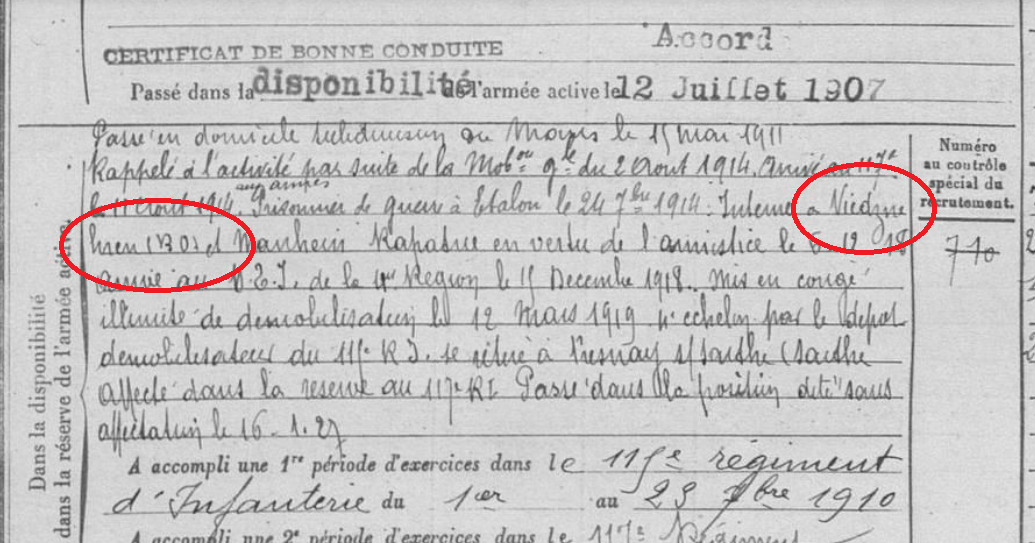 Accord
CERTIFICAT DE BONNE CONDUITE
Passé dans la disponibilité de l'armée active le 12 Juillet 1907
Passé en domicile au le 15 mai 1911
Rappelé à l'activité par suite de la Mobon gle du 2 Aout 1914. Arrivé au 117e
le 11 Aout 1914. Prisonnier de guerre à Etalon le 24 7bre 1914. Interné a
hren (BO) et Manheim Rapatrié en vertu de l'amistice le 12 18
Arrivé au de la 4me Region le 15 Decembre 1918. Mis en congé
illimité de demobilisation le 12 Mars 1919 4e echelon par le depot
demobilisateur du RI. se retire à Fresnay s/sarthe (Sarthe
affecté dans la reserve au 117e RI Passé dans la position dite "sans
affectation le 16-1-27
Numéro
au contrôle
spécial du
recrutement.
710
Dans la disponibilité
dans la réserve de l'armée active.
A accompli une 1re période d'exercices dans le régiment
d'Infanterie du 1er au 23 1910
A accompli une 2e période d'exercices dans le Régiment